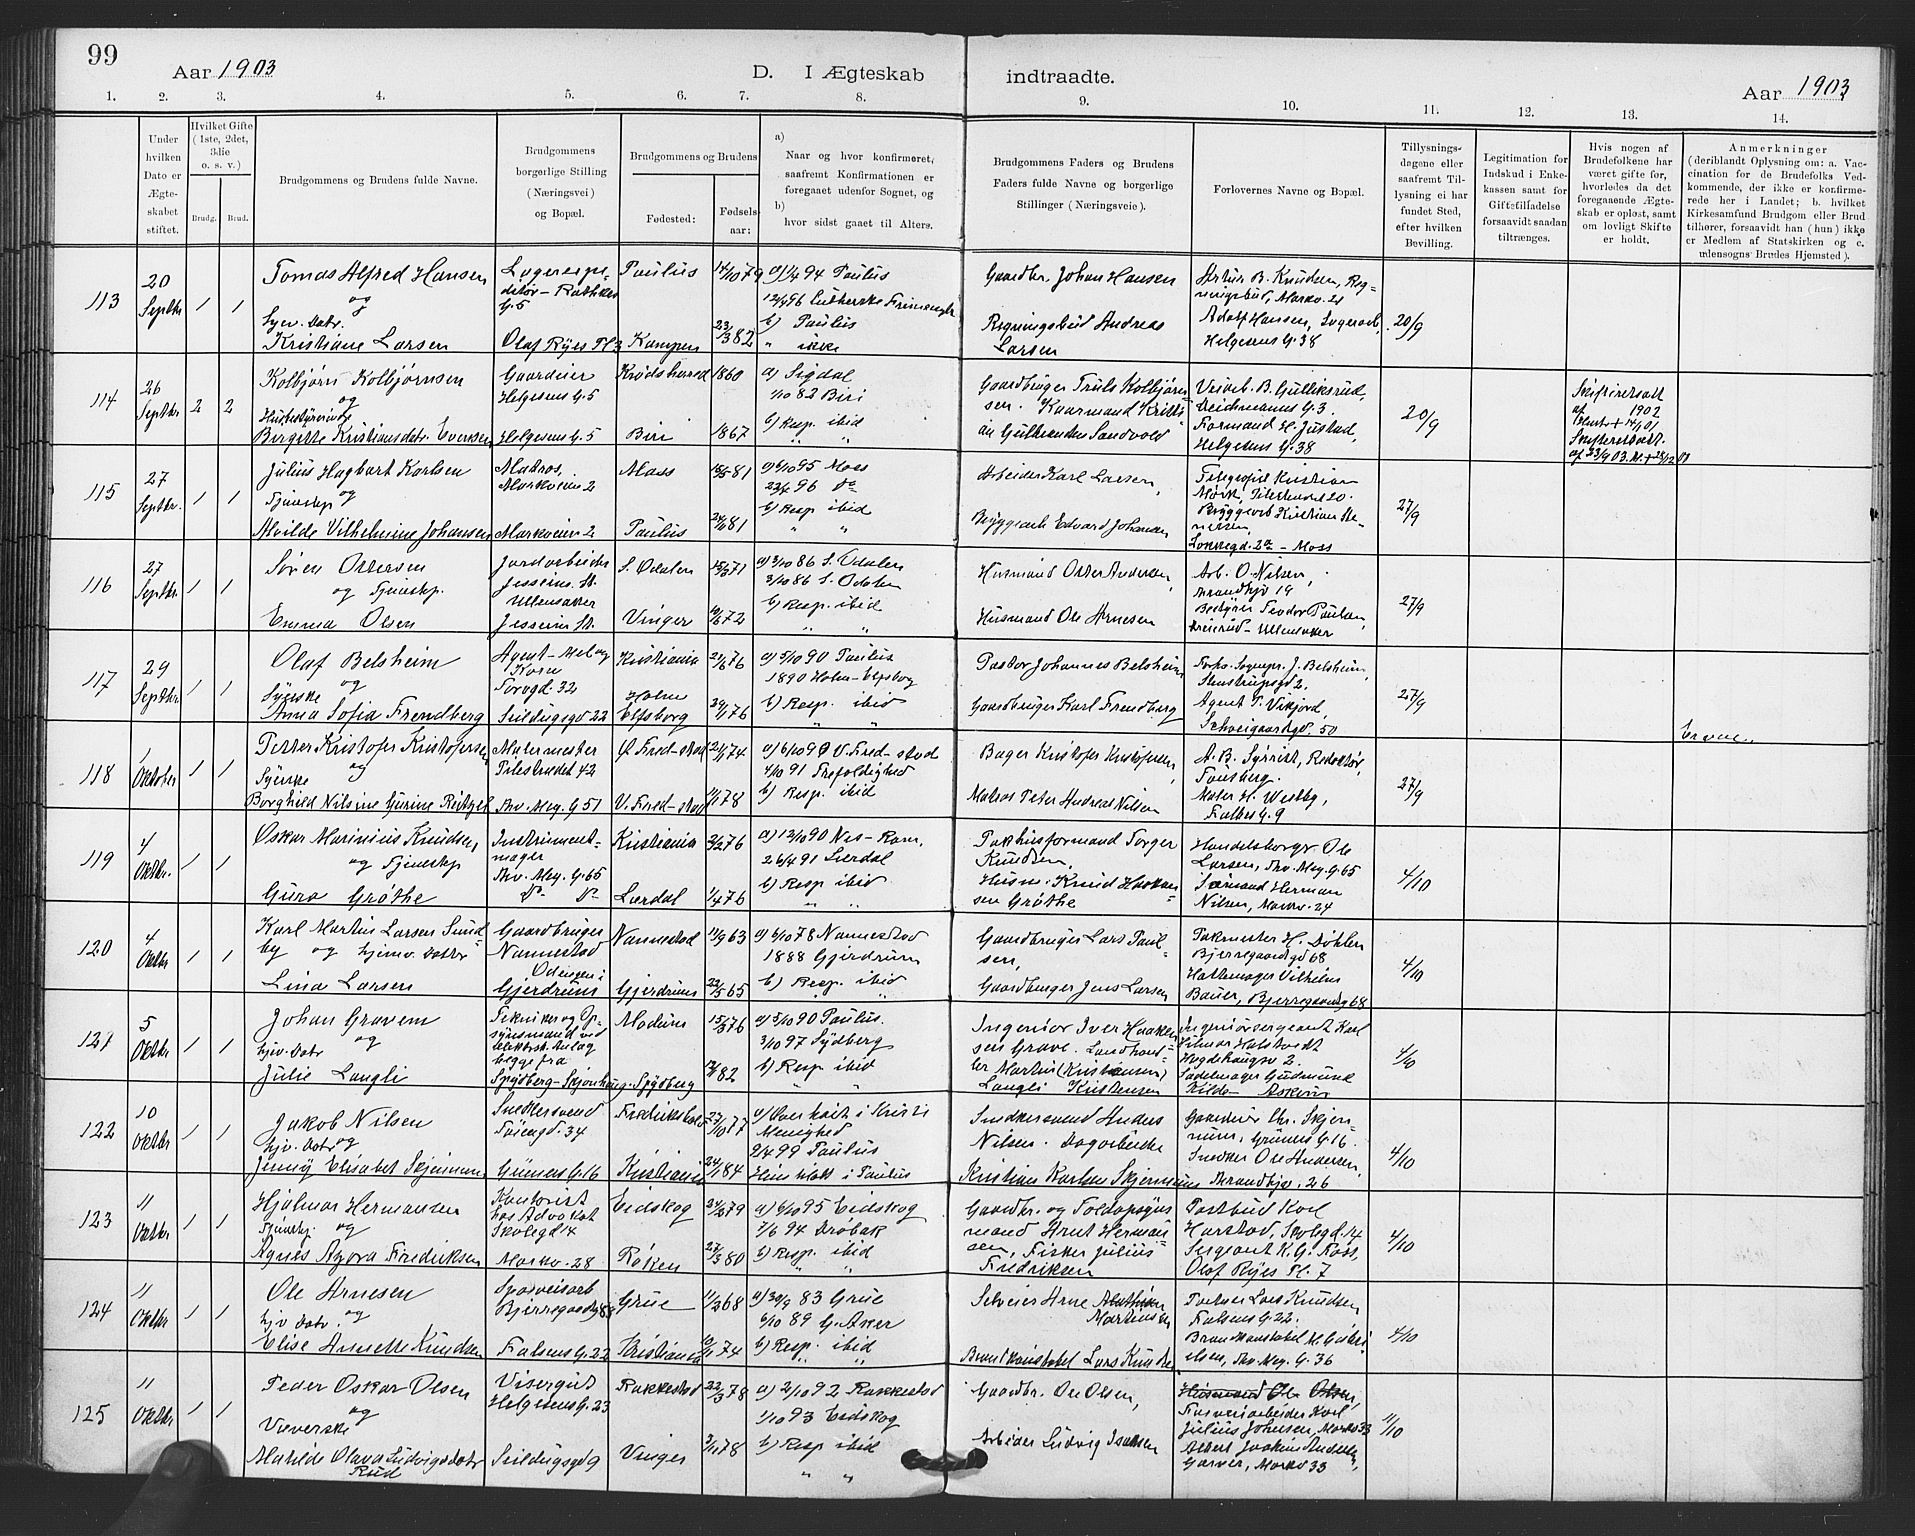 99
Aar 1903
D. I Ægteskab indtraadte.
Aar 1903
1. 2. 3. 4. 5. 6. 7. 8. 9. 10. 11. 12. 13. 14.
Under hvilken Dato er Ægteskabet stiftet.
Hvilket Gifte (1ste, 2det, 3die o. s. v.)
Brudg. Brud.
Brudgommens og Brudens fulde Navne.
Brudgommens borgerlige Stilling (Næringsvei) og Bopæl.
Brudgommens og Brudens
Fødested:
Fødselsaar:
a) Naar og hvor konfirmeret, saafremt Konfirmationen er foregaaet udenfor Sognet, og
b) hvor sidst gaaet til Alters.
Brudgommens Faders og Brudens Faders fulde Navne og borgerlige Stillinger (Næringsveie).
Forlovernes Navne og Bopæl.
Tillysningsdagene eller saafremt Tillysning ei har fundet Sted, efter hvilken Bevilling.
Legitimation for Indskud i Enkekassen samt for Giftetilladelse forsaavidt saadan tiltrænges.
Hvis nogen af Brudefolkene har været gifte før, hvorledes da det foregaaende Ægteskab er opløst, samt om lovligt Skifte er holdt.
Anmerkninger (deriblandt Oplysning om: a. Vaccination for de Brudefolks Vedkommende, der ikke er konfirmerede her i Landet; b. hvilket Kirkesamfund Brudgom eller Brud tilhører, forsaavidt han (hun) ikke er Medlem af Statskirken og c. udensogns Brudes Hjemsted).
113
20 Septbr
1 1
Tomas Alfred Hansen
og
Kristiane Larsen
G. 5
Olaf Ryes Pl 3
Paulus
Kampen
14/10 79
23/3 82
b) Paulus
" ikke
Gaardbr. Johan Hansen
Regningsbud Andreas
Larsen
Artur B. Knudsen, Regningsbud, Markv. 21
Adolf Hansen, Lagerarb.
Helgesens G. 38
20/9
114
26 Septbr
2 2
Kolbjørn Kolbjørnsen
og
Birgitte Kristiansdatr. Evensen
Gaardeier
Helgesens G. 5
Helgesens G. 5
Krødsherred
Biri
1860
1867
a) Sigdal
1/10 82 Biri
b) Resp. ibid
Gaardbruger Truls Kolbjørnsen.
Formand H. Justad,
Helgesens G. 38
20/9
af 1902
115
27 Septbr.
1 1
Julius Hagbart Karlsen
og
Tjenestep
Milde Vilhelmine Johansen
Matros,
Markveien 2
Markveien 2
Moss
Paulus
a) 6/10 95 Moss
b) Resp ibid
Arbeider Karl Larsen,
Bryggearb Edvard Johansen
Telegrafist Kristian
Mørk, Pilestrædet 20.
Moss
27/9
116
27 Septbr.
1 1
Søren Ottersen
og Tjenestep.
Emma Olsen
Jordarbeider
Jessheim St.
Ullensaker
Jessheim St.
S. Odalen
Vinger
15/3 71
10/6 72
a) 3/10 86 S. Odalen
3/10 86 S. Odalen
b) Resp. ibid
Husmand Otter Andersen,
Husmand Ole Arnesen
Arb. O. Nilsen,
Strandhjv 19
Bestyrer Teodor Paulsen,
Ullensaker
27/9
117
29 Septbr.
1 1
Olaf Belsheim
og
Syerske
Anna Sofia Frendberg
Agent – Mel og Korn
Torvgd. 32
Seildugsgd 22
Kristiania
Holm
Elfsborg
21/6 76
29/1 76
a) 5/10 90 Paulus
1890 Holm – Elfsborg
b) Resp. ibid
Pastor Johannes Belsheim
Gaardbruger Karl Frendberg
Forhv. Sognepr. J. Belsheim,
Stenstrupsgd 2,
Agent T. Vikjord,
Schweigaardsgd. 50
27/9
118
1 Oktober
1 1
Petter Kristofer Kristofersen
og
Syerske
Borghild Nilsine Gurine Reitzel
Malermester
Pilestrædet 42
Thv. Mey. G 51
Ø Fred-stad
V. Fred-stad
21/1 74
11/1 78
a) 6/10 90 V. Fred-stad
4/10 91 Trefoldighed
b) Resp. ibid
Bager Kristofer Kristofersen,
Matros Peter Andreas Nilsen
A. B. Syvrist, Redaktør,
Tønsberg.
Maler H. Westby,
Falbes G. 9
27/9
119
4 Oktbr.
1 1
Oskar Marinius Knudsen,
og Tjenestep
Guro Grøthe
Instrumentmager
Thv. Mey. G. 65
Do Do
Kristiania
Lærdal
2/2 76
1/4 76
26/4 91 Lærdal
b) Resp ibid
Pakhusformand Torger
Knudsen,
Husm. Knud Haakensen Grøthe
Handelsborgr Ole
Larsen, Thv. Mey. G. 65
Sømand Herman
Nilsen, Markv. 24
4/10
120
4 Oktbr
1 1
Karl Martin Larsen Sundby og hjemv. Dattr
Lina Larsen
Gaardbruger
Nannestad
Gjerdrum
Nannestad
Gjerdrum
11/9 63
22/5 65
a) 6/10 78 Nannestad
1888 Gjerdrum
b) Resp. ibid
Gaardbruger Lars Paulsen,
Gaardbruger Jens Larsen
Takmester H. Døhlen
Bjerregaardsgd 68
Hattemager Vilhelm
Bauer, Bjerregaardsg 68
4/10
121
5 Oktbr
1 1
Johan Gravem
og
hjv. Datr
Julie Langli
Tekniker og Opsynsmand ved
elektrisk Anlæg
begge fra
Spydberg – Skjønhaug
Modum
Spydberg
15/3 76
a) 5/10 90 Paulus.
3/10 97 Spydberg
b) Resp ibid
Ingeniør Iver Haakensen Grave. Landhandler Martin (Kristensen)
Langli Kristensen
Ingeniørsergeant Karl
Hilmar Halstvedt
Hegdehaugsv 2.
Sadelmager Gudmund
Kilde – Askim
4/10
122
10 Oktbr
1 1
Jakob Nilsen
hjv. Datr og
Jenny Elisabet Skjennum
Snedkersvend
Tøiengd. 34
Grüners G. 16
Fredrikshald
Kristiania
27/10 77
24/1 84
Menighed
9/4 99 Paulus
Snedkersvend Anders
Nilsen. Dagarbeider
Kristian Karlsen Skjennum
Gaardeier Chr. Skjennum, Grüners G. 16.
Snedker Ole Andersen,
Strandhjv. 26
4/10
123
11 Oktbr
1 1
Hjalmar Hermansen
Tjenestep. og
Agnes Agora Fredriksen
Kontorist
hos Advokat
Skolegd 4
Markv. 28
Eidskog
Røken
27/3 80
a) 6/10 95 Eidskog
7/6 94 Drøbak
b) Resp. ibid
Gaardbr. og Toldopsynsmand Arnt Hermansen, Fisker Julius
Fredriksen
Postbud Karl
Harstad, Skolegd. 14
Sergeant K. G. Foss,
Olaf Ryes Pl. 7
4/10
124
11 Oktbr
1 1
Ole Arnesen
hjv Datr. og
Elise Annette Knudsen
Sporveisarb
Falsens G. 22
Grue
Kristiania
11/3 68
10/1 74
a) 30/9 83 Grue
6/10 89 G. Aker
b) Resp. ibid
Selveier Arne
Martinsen
Brandkonstabel Lars Knudsen
Lars Knudsen
Falsens G. 22.
Thv. Mey. G. 36
4/10
125
11 Oktbr
1 1
Peder Oskar Olsen
og
Væverske
Matilde Olava Ludvigsdatr
Rud
Visergut
Helgesens G. 23
Seildugsgd 9
Rakkestad
Vinger
22/3 78
3/11 78
a) 2/10 92 Rakkestad
1/10 93 Eidskog
b) Resp ibid
Gaardbr. Ole Olsen,
Arbeider Ludvig Isaksen
Husmand Ole Olsen,
Farveriarbeider Karl
Julius Johnsen, Markv 33
Albert Joakim Andersen,
Garver, Markv 33
11/10